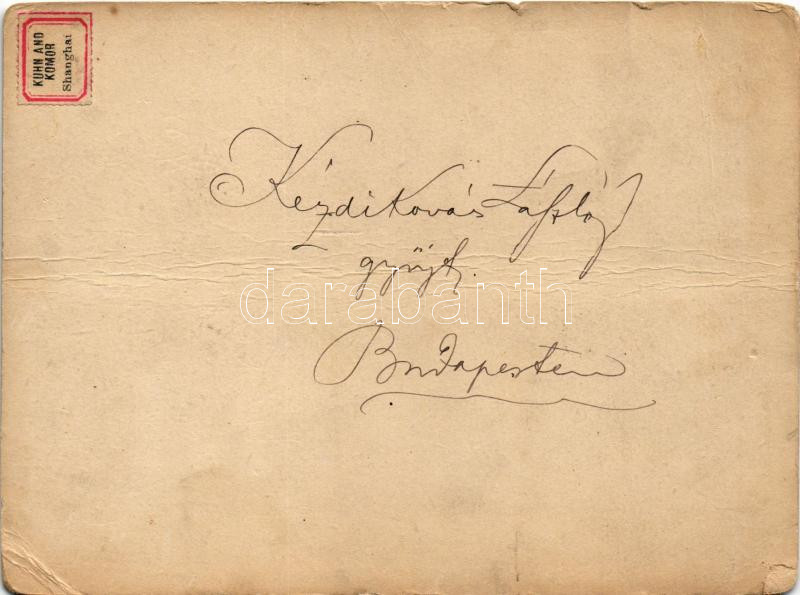 KUHN AND
KOMOR
Shanghai
Kézdikovás László
gyűjt.
Budapesten
darabanth